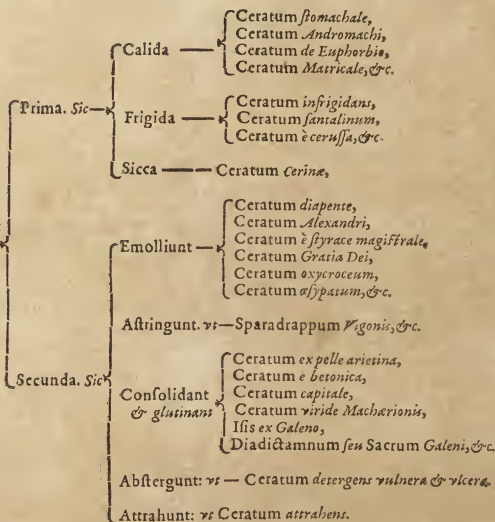 Ceratum ſtomachale,
Ceratum Andromachi,
Calida Ceratum de Euphorbio,
Ceratum Matricale, &c.
Prima. Sic
Ceratum infrigidans,
Frigida Ceratum ſantalinum,
Ceratum è ceruſſa, &c.
Sicca Ceratum Cerinæ,
Ceratum diapente,
Ceratum Alexandri,
Emolliunt Ceratum è ſtyrace magiſtrale,
Ceratum Gratia Dei,
Ceratum oxycroceum,
Ceratum œſypatum, &c.
Aſtringunt. vt Sparadrappum Vigonis, &c.
Secunda. Sic
Ceratum ex pelle arietina,
Ceratum è betonica,
Conſolidant Ceratum capitale,
& glutinant Ceratum viride Machærionis,
Iſis ex Galeno,
Diadictamnum ſeu Sacrum Galeni, &c.
Abſtergunt: vt Ceratum detergens vulnera & vlcera.
Attrahunt: vt Ceratum attrahens.